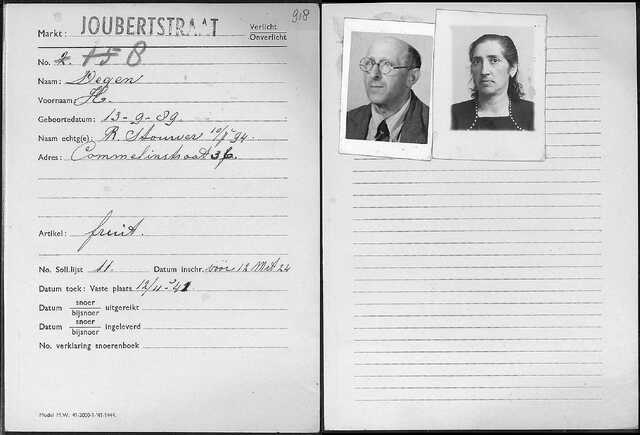 918
Markt: JOUBERTSTRAAT Verlicht
Onverlicht
No. 8
Naam: Degen
Voornaam: H.
Geboortedatum: 13-9-89
Naam echtg(e): R. Stouwer 94.
Adres: Commelinstraat
Artikel: fruit.
No. Soll.lijst 11. Datum inschr. voor 12 Mrt 24
Datum toek: Vaste plaats 12/11-'41
Datum snoer uitgereikt
bijsnoer
Datum snoer ingeleverd
bijsnoer
No. verklaring snoerenboek
Model M.W. 41-2000-1-'41-1444.